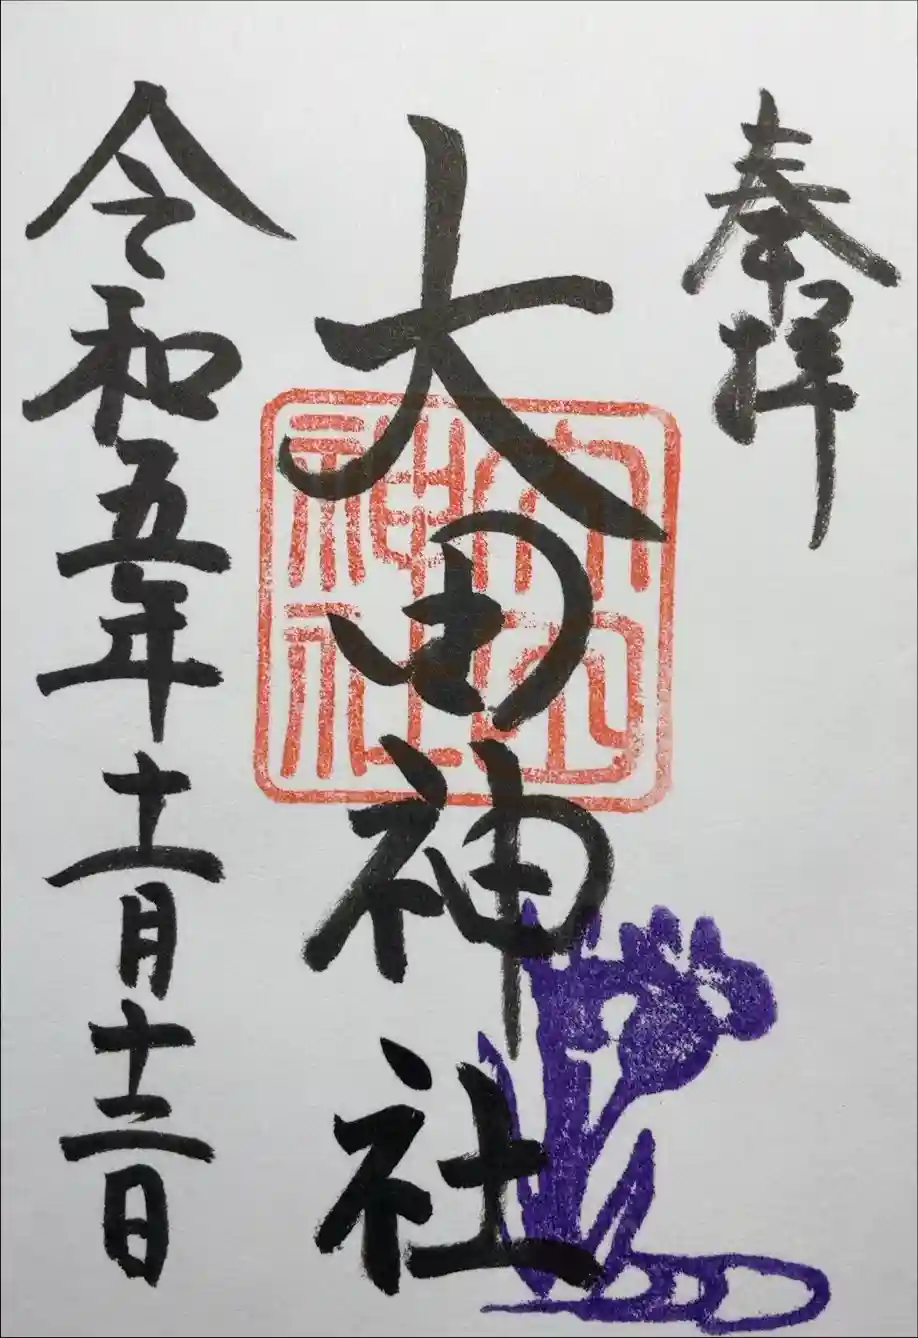 奉拝
大田神社
大田神社
令和五年十一月十二日